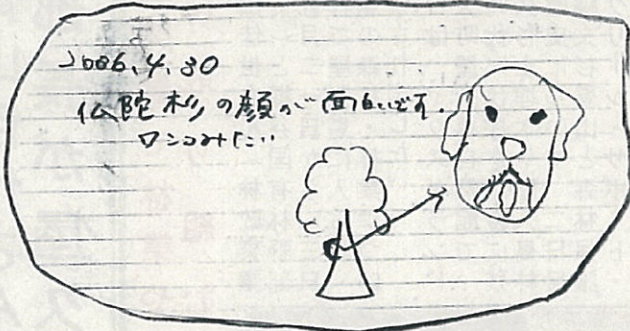 2006.4.30
仏陀杉の顔が面白いです.
ワンコみたい